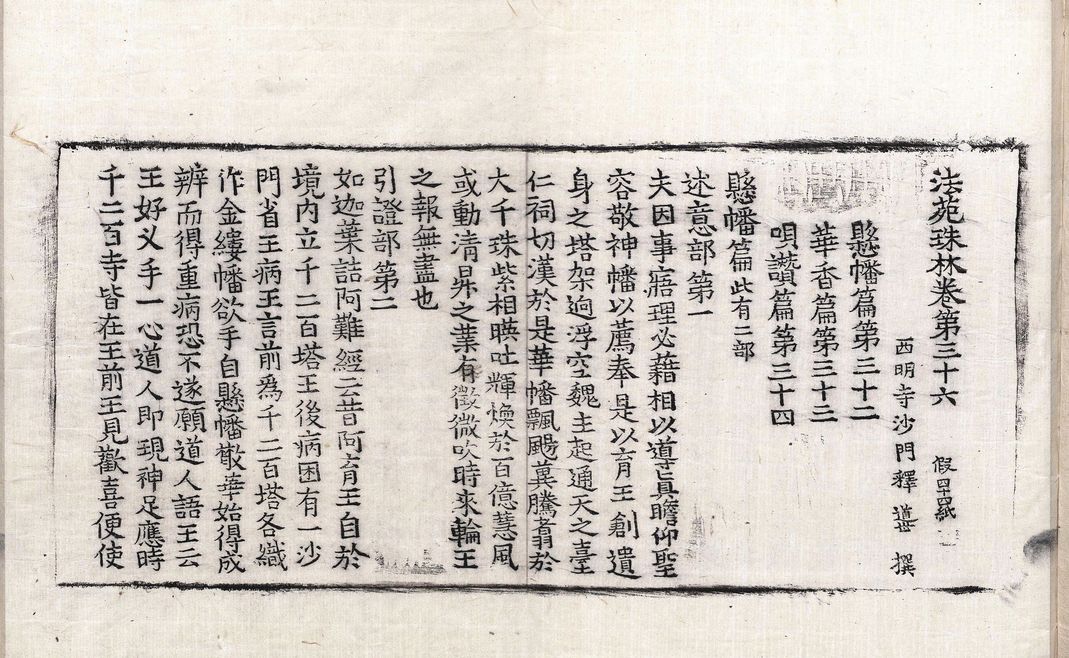 法苑珠林卷第三十六
西明寺沙門釋 撰
懸幡篇第三十二
華香篇第三十三
唄讚篇第三十四
懸幡篇此有二部
述意部第一
夫因事寤理必藉相以導真瞻仰聖
容敬神幡以薦奉是以育王創遺
身之塔架逈浮空魏主起通天之臺
仁祠切漢於是華幡飄颺冀騰翥於
大千珠紫相暎吐輝煥於百億慧風
或動清昇之業有徵微吹時來輪王
之報無盡也
引證部第二
如迦葉詰阿難經云昔阿育王自於
境内立千二百塔王後病困有一沙
門省王病王言前爲千二百塔各織
作金縷幡欲手自懸幡散華始得成
辨而得重病恐不遂願道人語王云
王好叉手一心道人即現神足應時
千二百寺皆在王前王見歡喜便使